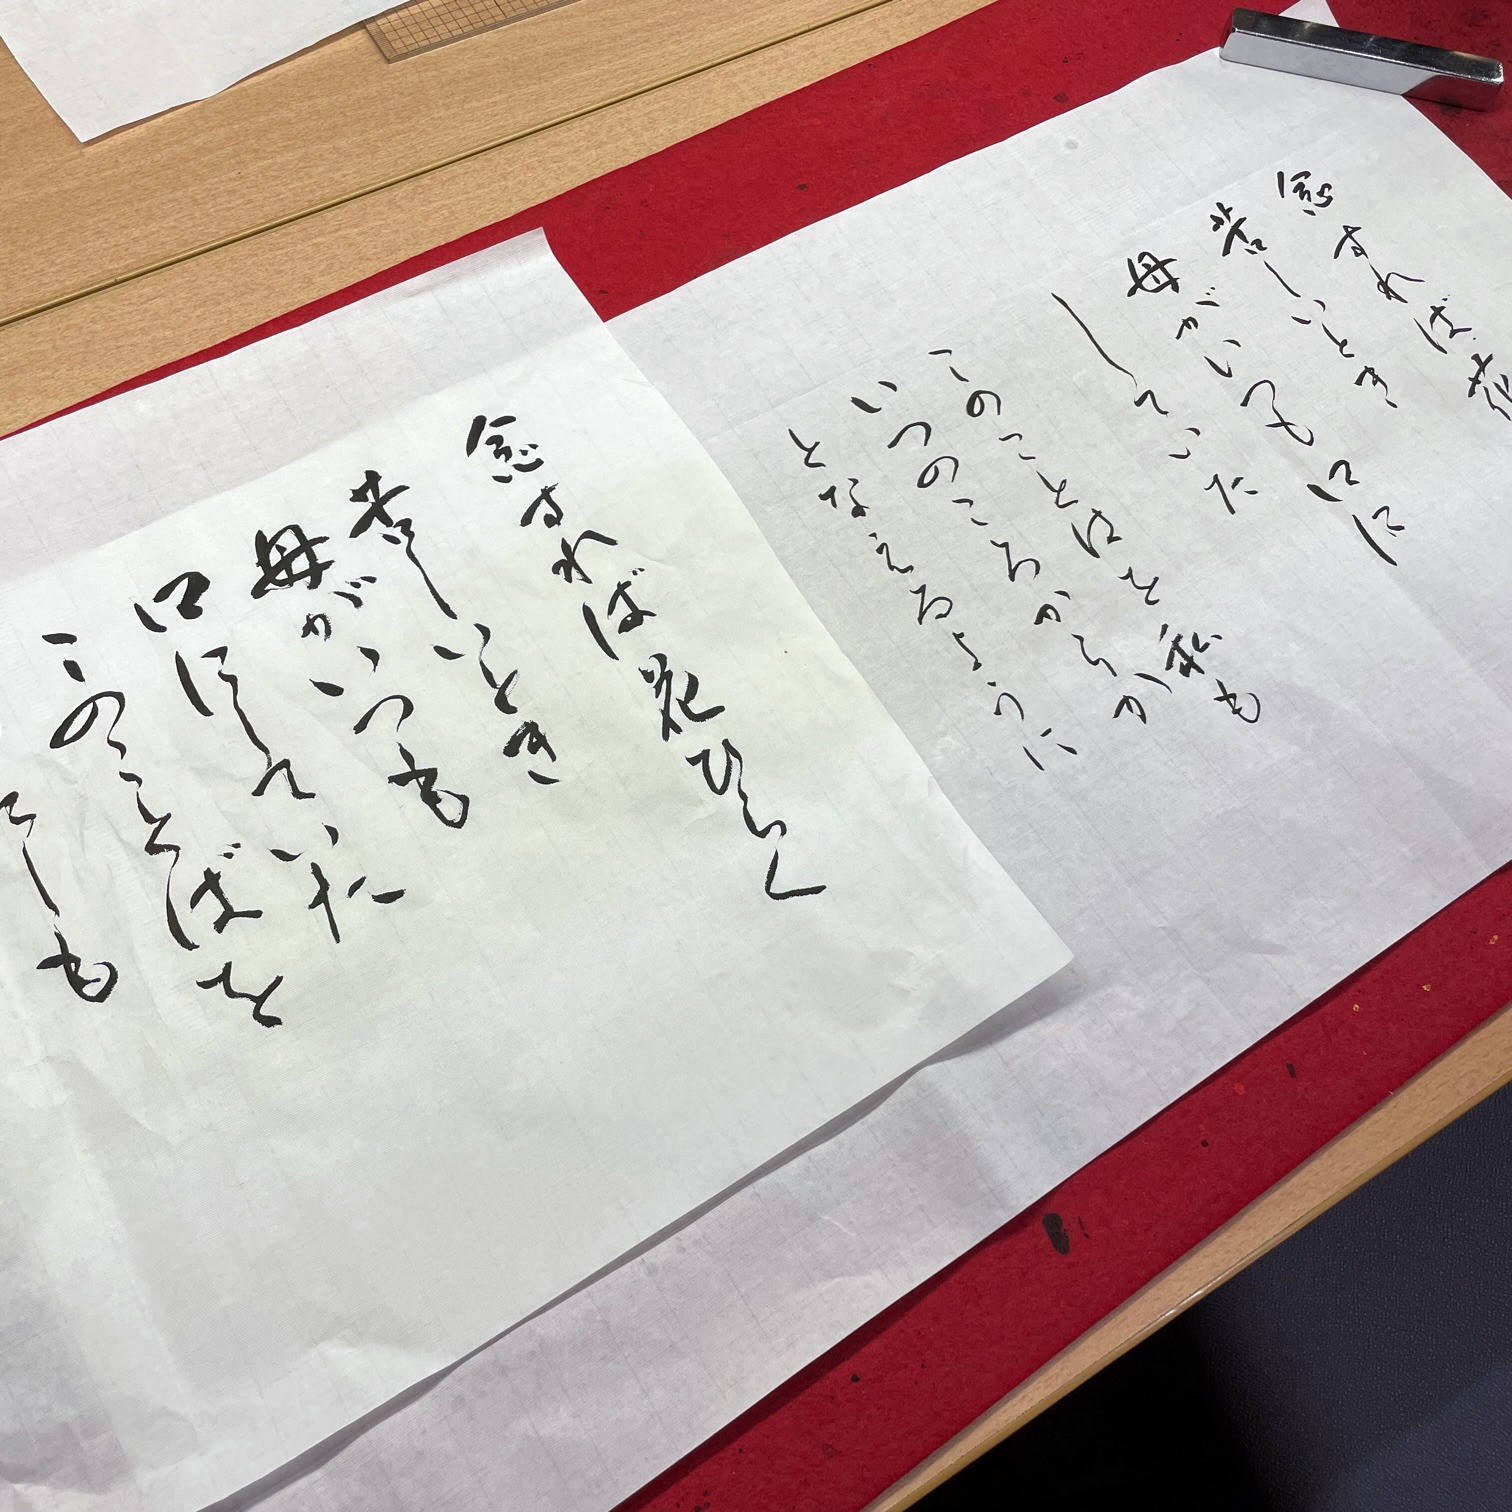 念すれば花
苦しいとき
母がいつも口に
していた
このことはを私も
いつのころからか
となえるように
念すれば花ひらく
苦しいとき
母がいつも
口にしていた
このことばを
しも